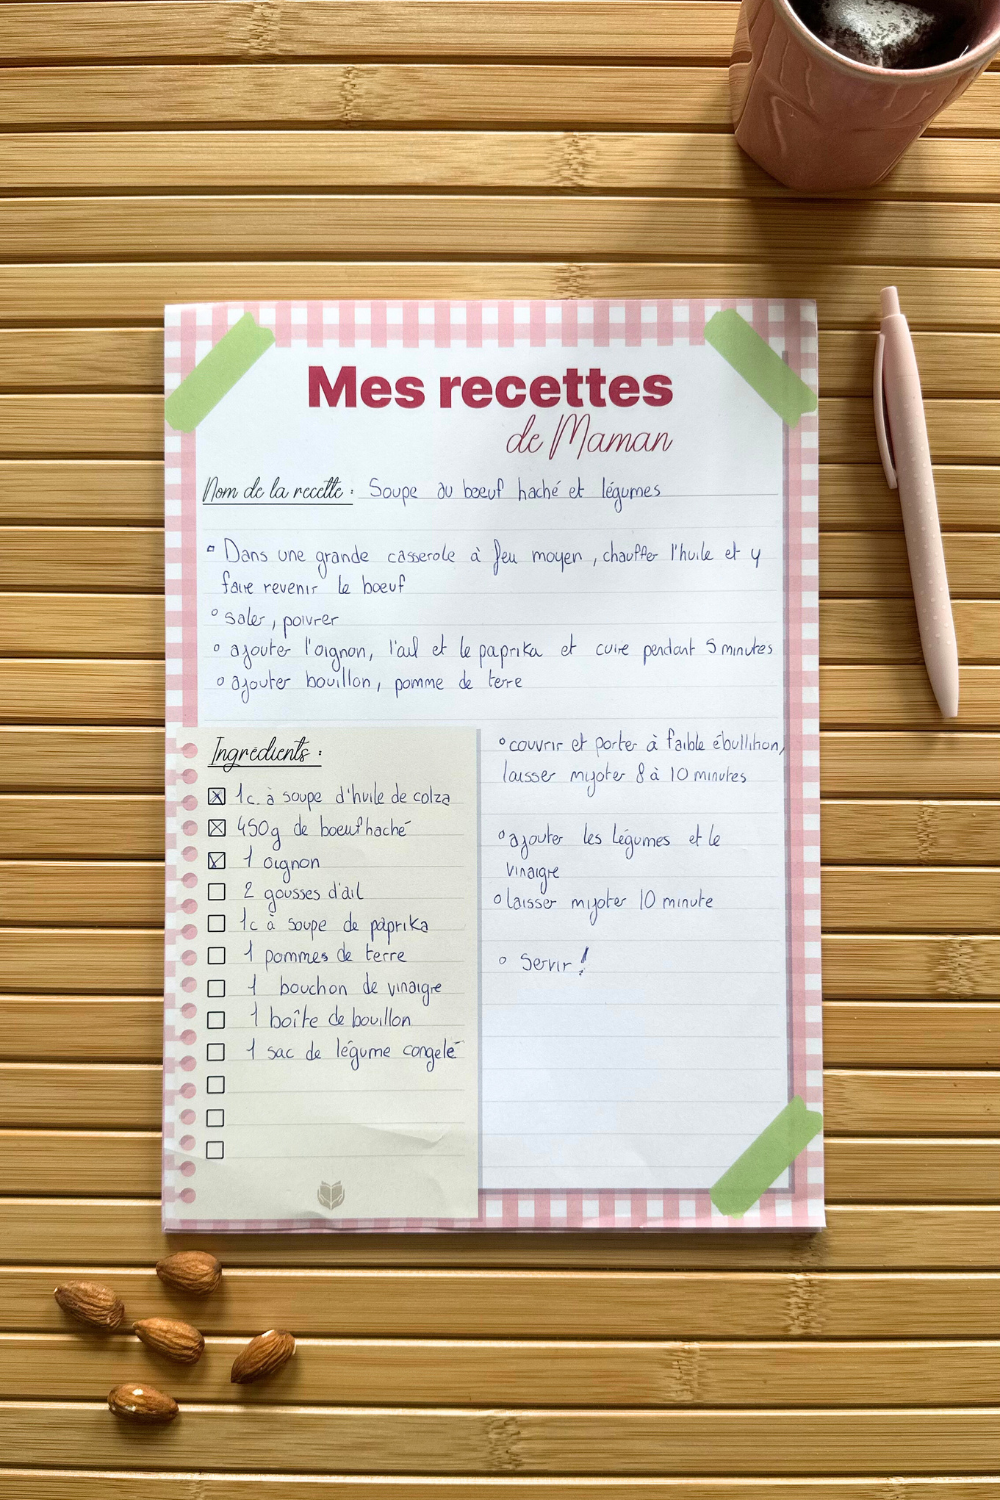 Mes recettes
de Maman
Nom de la recette : Soupe au boeuf haché et légumes
Dans une grande casserole à feu moyen, chauffer l'huile et y
faire revenir le boeuf
saler, poivrer
ajouter l'oignon, l'ail et le paprika et cuire pendant 5 minutes
ajouter bouillon, pomme de terre
Ingrédients :
1 c. à soupe d'huile de colza
450g de boeuf haché
1 oignon
2 gousses d'ail
1c à soupe de paprika
1 pommes de terre
1 bouchon de vinaigre
1 boîte de bouillon
1 sac de légume congelé
couvrir et porter à faible ébullition,
laisser mijoter 8 à 10 minutes
ajouter les légumes et le
vinaigre
laisser mijoter 10 minute
Servir !